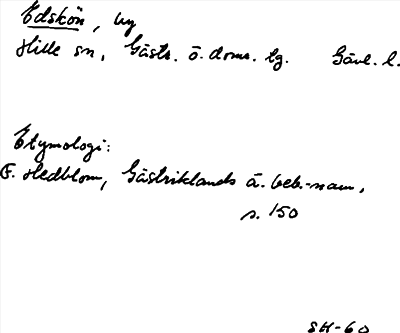 Edskön, by
Hille sn, Gästr. ö. doms. lg. Gävl. l.
Etymologi:
F. Hedblom, Gästriklands ä. beb.-namn,
s. 150
SH-60